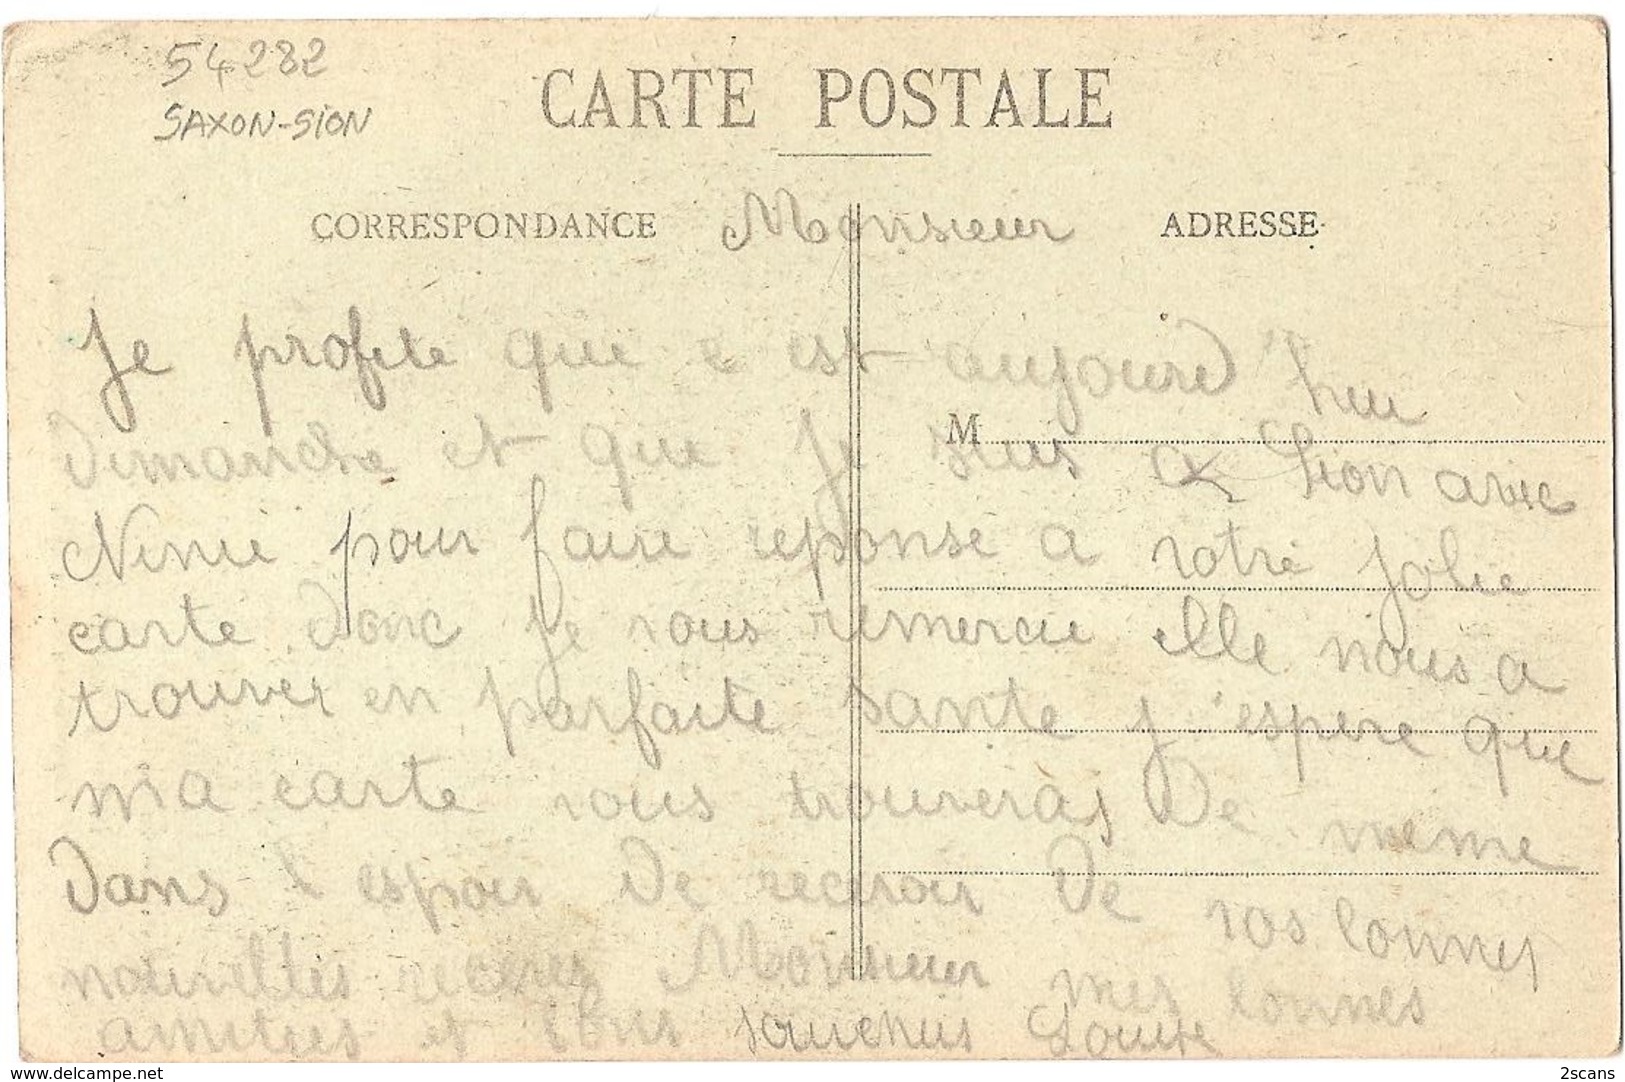 54282
SAXON-SION
CARTE POSTALE
CORRESPONDANCE
ADRESSE
Monsieur
Je profite que c est aujourd'hui
M
Dimanche et que Je suis a Sion avec
Ninie pour faire reponse a votre jolie
carte Donc Je vous remercie elle nous a
trouver en parfaite sante j'espere que
ma carte vous trouveras De meme
Dans l espoir De recevoir De vos bonnes
nouvelles recevez Monsieur mes bonnes
amities et bons souvenirs
delcampe.net
2scans